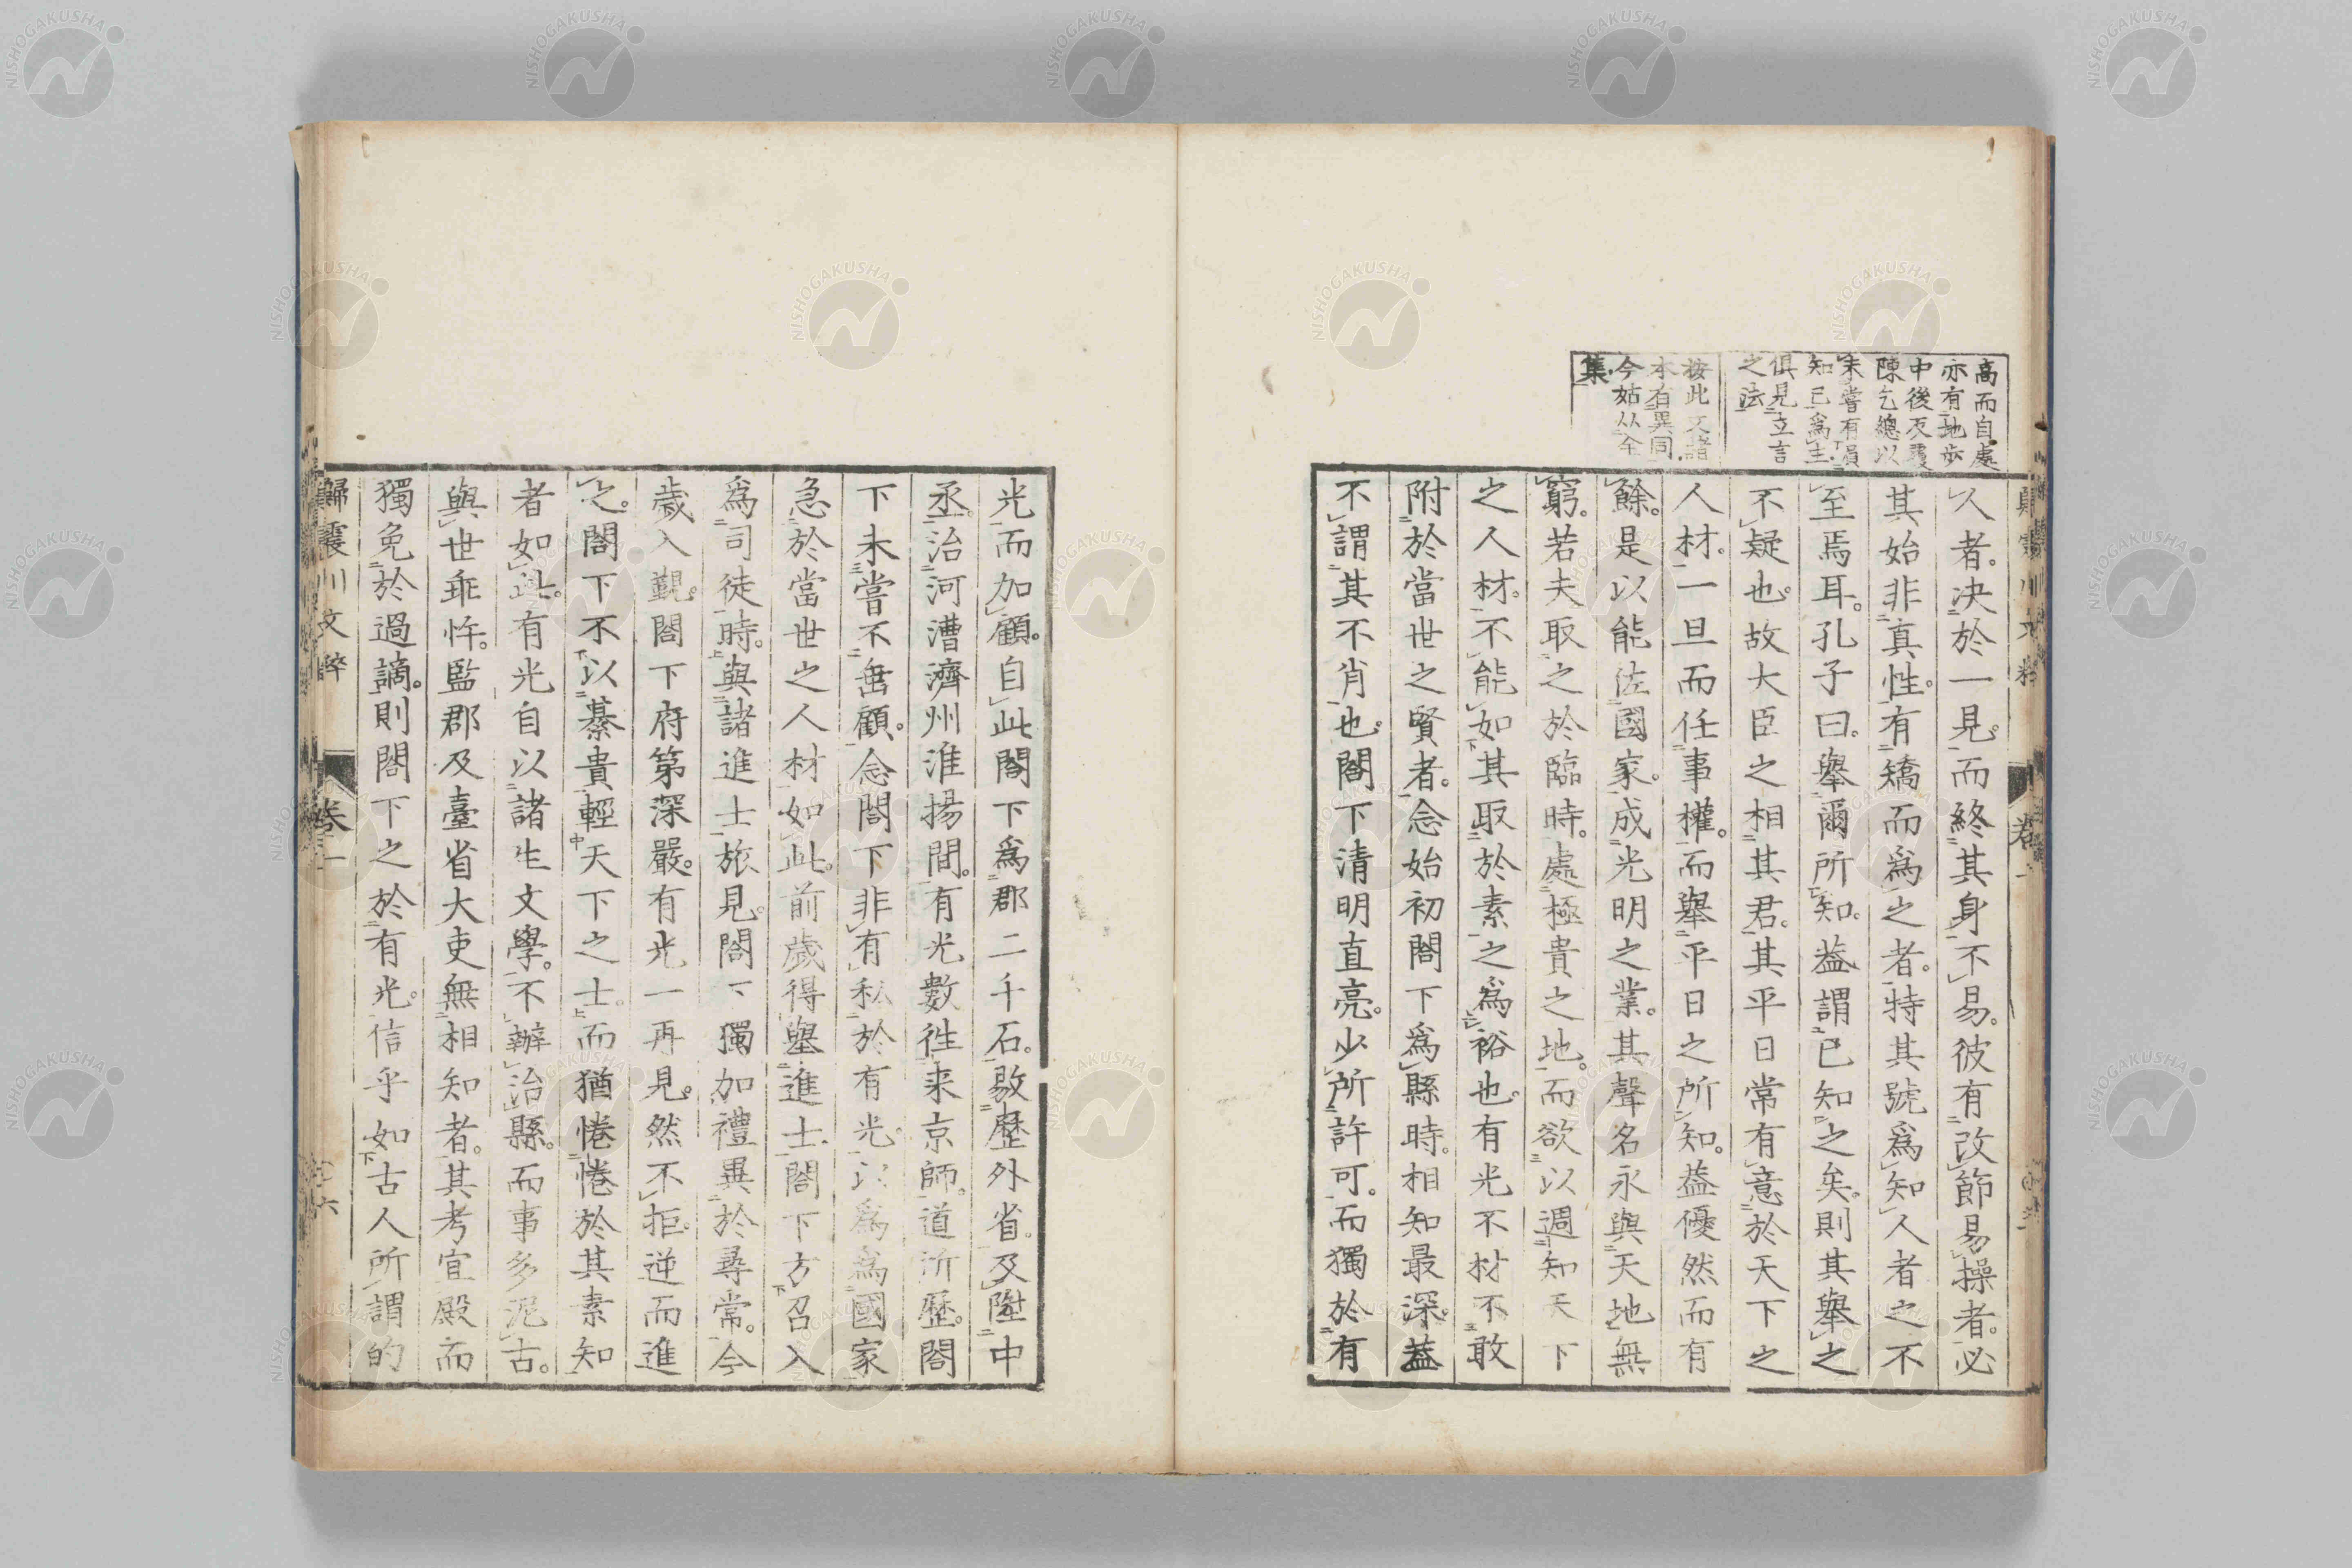 高而自處
亦有地歩
中後反覆
陳乞總以
未嘗有損
知已爲主
俱見立言
之法
按此文諸
本有異同
今姑从全
集
人者。决於一見。而終其身不易。彼有改節易操者。必
其始非真性。有矯而爲之者。特其號爲知人者之不
至焉耳。孔子曰。舉爾所知。葢謂已知之矣。則其舉之
不疑也。故大臣之相其君。其平日常有意於天下之
人材。一旦而任事權。而舉平日之所知。葢優然而有
餘。是以能佐國家。成光明之業。其聲名永與天地無
窮。若夫取之於臨時。處極貴之地。而欲以週知天下
之人材。不能如其取於素之爲裕也。有光不材不敢
附於當世之賢者。念始初閤下爲縣時。相知最深。葢
不謂其不肖也。閤下清明直亮。少所許可。而獨於有
光而加顧。自此閤下爲郡二千石。敭歷外省。及陞中
丞。治河漕濟州淮揚間。有光數徃来京師。道所歷。閤
下未嘗不垂顧。念閤下非有私於有光。以爲爲國家
急於當世之人材如此。前歳得舉進士。閤下方召入
爲司徒時。與諸進士旅見。閤下獨加禮異於尋常。今
歳入覲。閤下府第深嚴。有光一再見。然不拒逆而進
之。閤下不以綦貴輕天下之士。而猶惓惓於其素知
者如此。有光自以諸生文學。不辦治縣。而事多泥古。
與世乖忤。監郡及臺省大吏無相知者。其考宜殿而
獨免於過謫。則閤下之於有光。信乎如古人所謂的
歸震川文粹
卷一
六
NISHOGAKUSHA